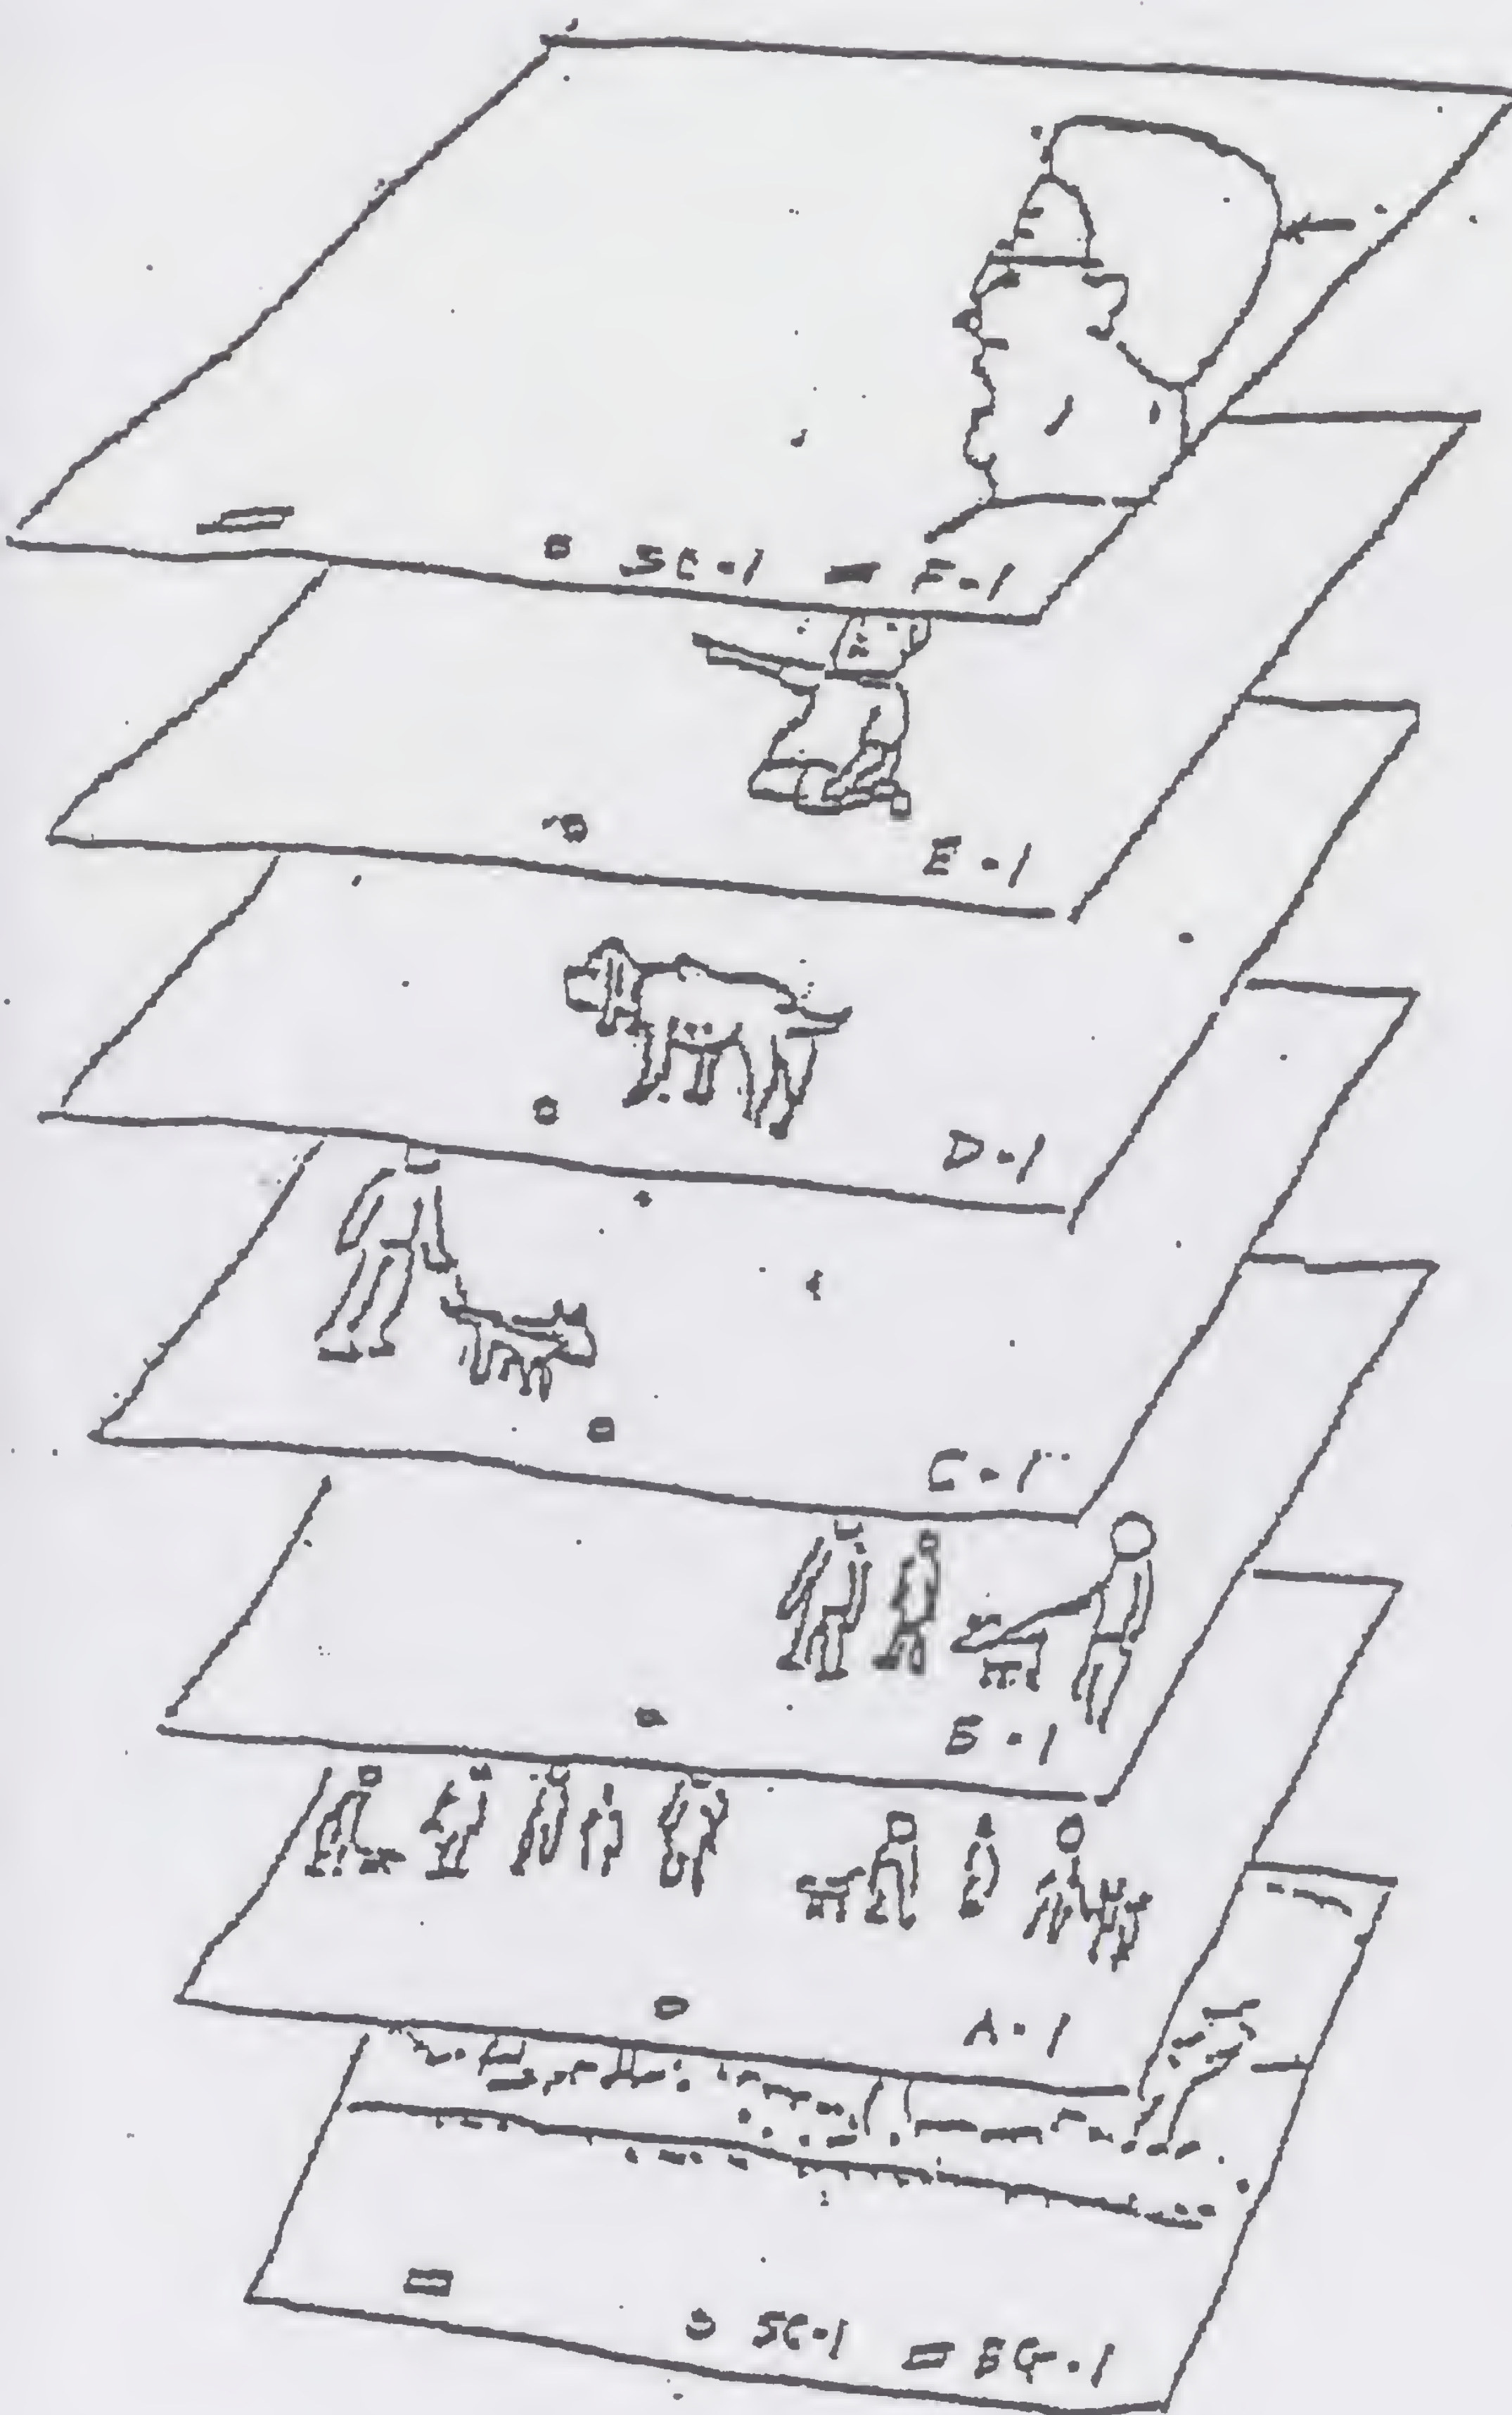 SC-1 F-1
E-1
D-1
C-1
B-1
A-1
SC-1 BG-1